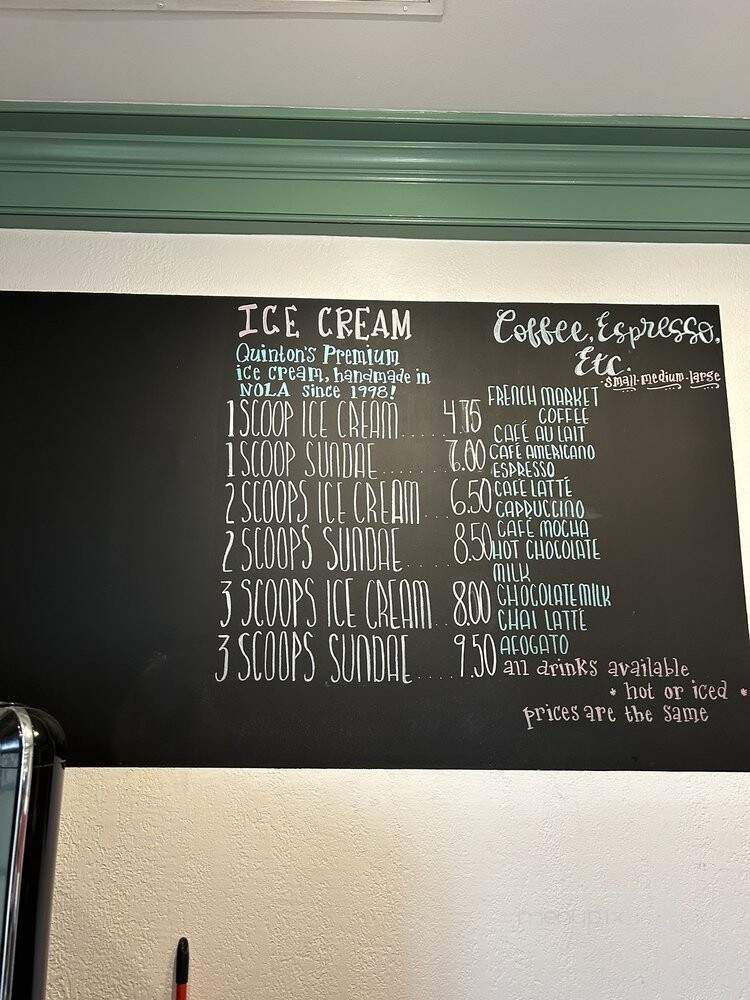 ICE CREAM
Quinton's Premium
ice cream, handmade in
NOLA since 1998!
1 SCOOP ICE CREAM......4.75
1 SCOOP SUNDAE.......7.00
2 SCOOPS ICE CREAM...6.50
2 SCOOPS SUNDAE.....8.50
3 SCOOPS ICE CREAM..8.00
3 SCOOPS SUNDAE.....9.50
Coffee, Espresso,
Etc.
·small-medium-large
FRENCH MARKET
COFFEE
CAFÉ AU LAIT
CAFÉ AMERICANO
ESPRESSO
CAFÉ LATTÉ
CAPPUCCINO
CAFÉ MOCHA
HOT CHOCOLATE
MILK
CHOCOLATE MILK
CHAI LATTÉ
AFOGATO
all drinks available
* hot or iced *
prices are the same